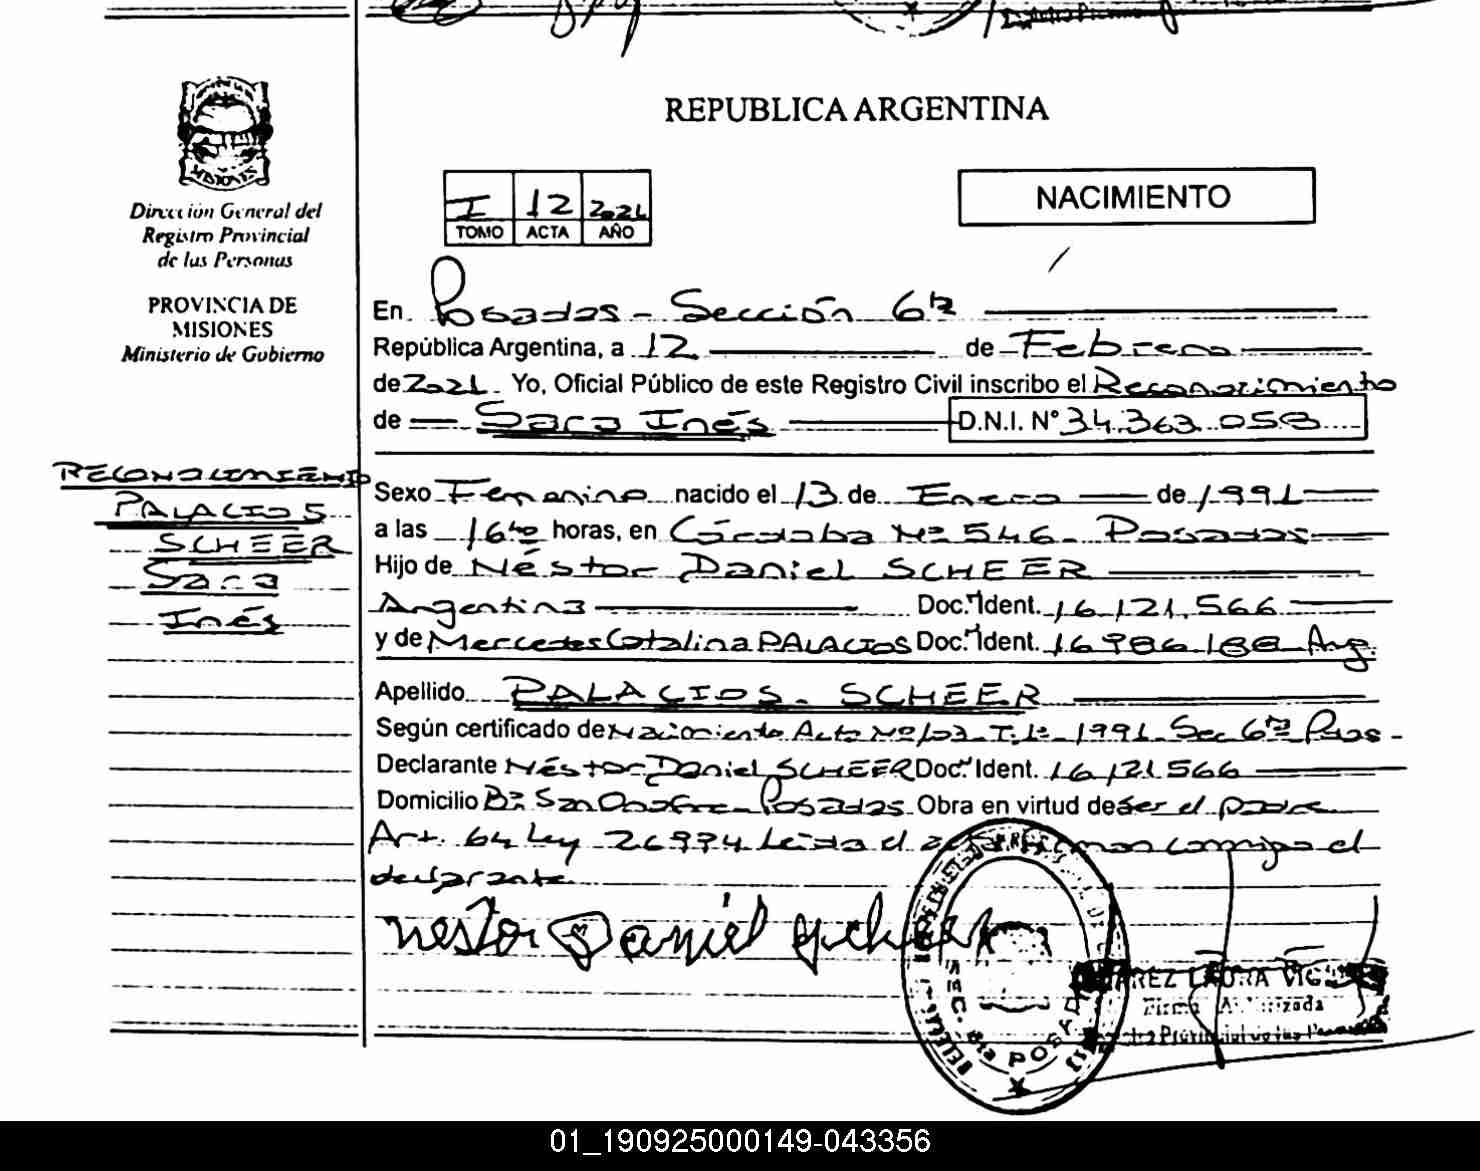 REPUBLICA ARGENTINA
MISIONES
Dirección General del
Registro Provincial
de las Personas
PROVINCIA DE
MISIONES
Ministerio de Gobierno
I 12 2021
TOMO ACTA AÑO
NACIMIENTO
En Posadas - Sección 6ta
República Argentina, a 12 de Febrero
de 2021. Yo, Oficial Público de este Registro Civil inscribo el Reconocimiento
de Sara Inés D.N.I. N° 34.363.058
RECONOCIMIENTO
PALACIOS
SCHEER
Sara
Inés
Sexo Femenino nacido el 13 de Enero de 1991
a las 16 horas, en Córdoba Nº 546 - Posadas
Hijo de Néstor Daniel SCHEER
Argentina Doc. Ident. 16.121.566
y de Mercedes Catalina PALACIOS Doc. Ident. 16.986.188 Arg.
Apellido PALACIOS - SCHEER
Según certificado de Nacimiento Acta Nº 103 T. 1º 1991 Sec 6ta Pdas -
Declarante Néstor Daniel SCHEER Doc. Ident. 16.121.566
Domicilio Bº San Onofre - Posadas Obra en virtud de ser el padre
Art. 64 Ley 26994 Leída el acta firman conmigo el
declarante
Nestor Daniel Scheer
SEC. 6ta POSADAS
LAURA
Firma Autorizada
01_190925000149-043356